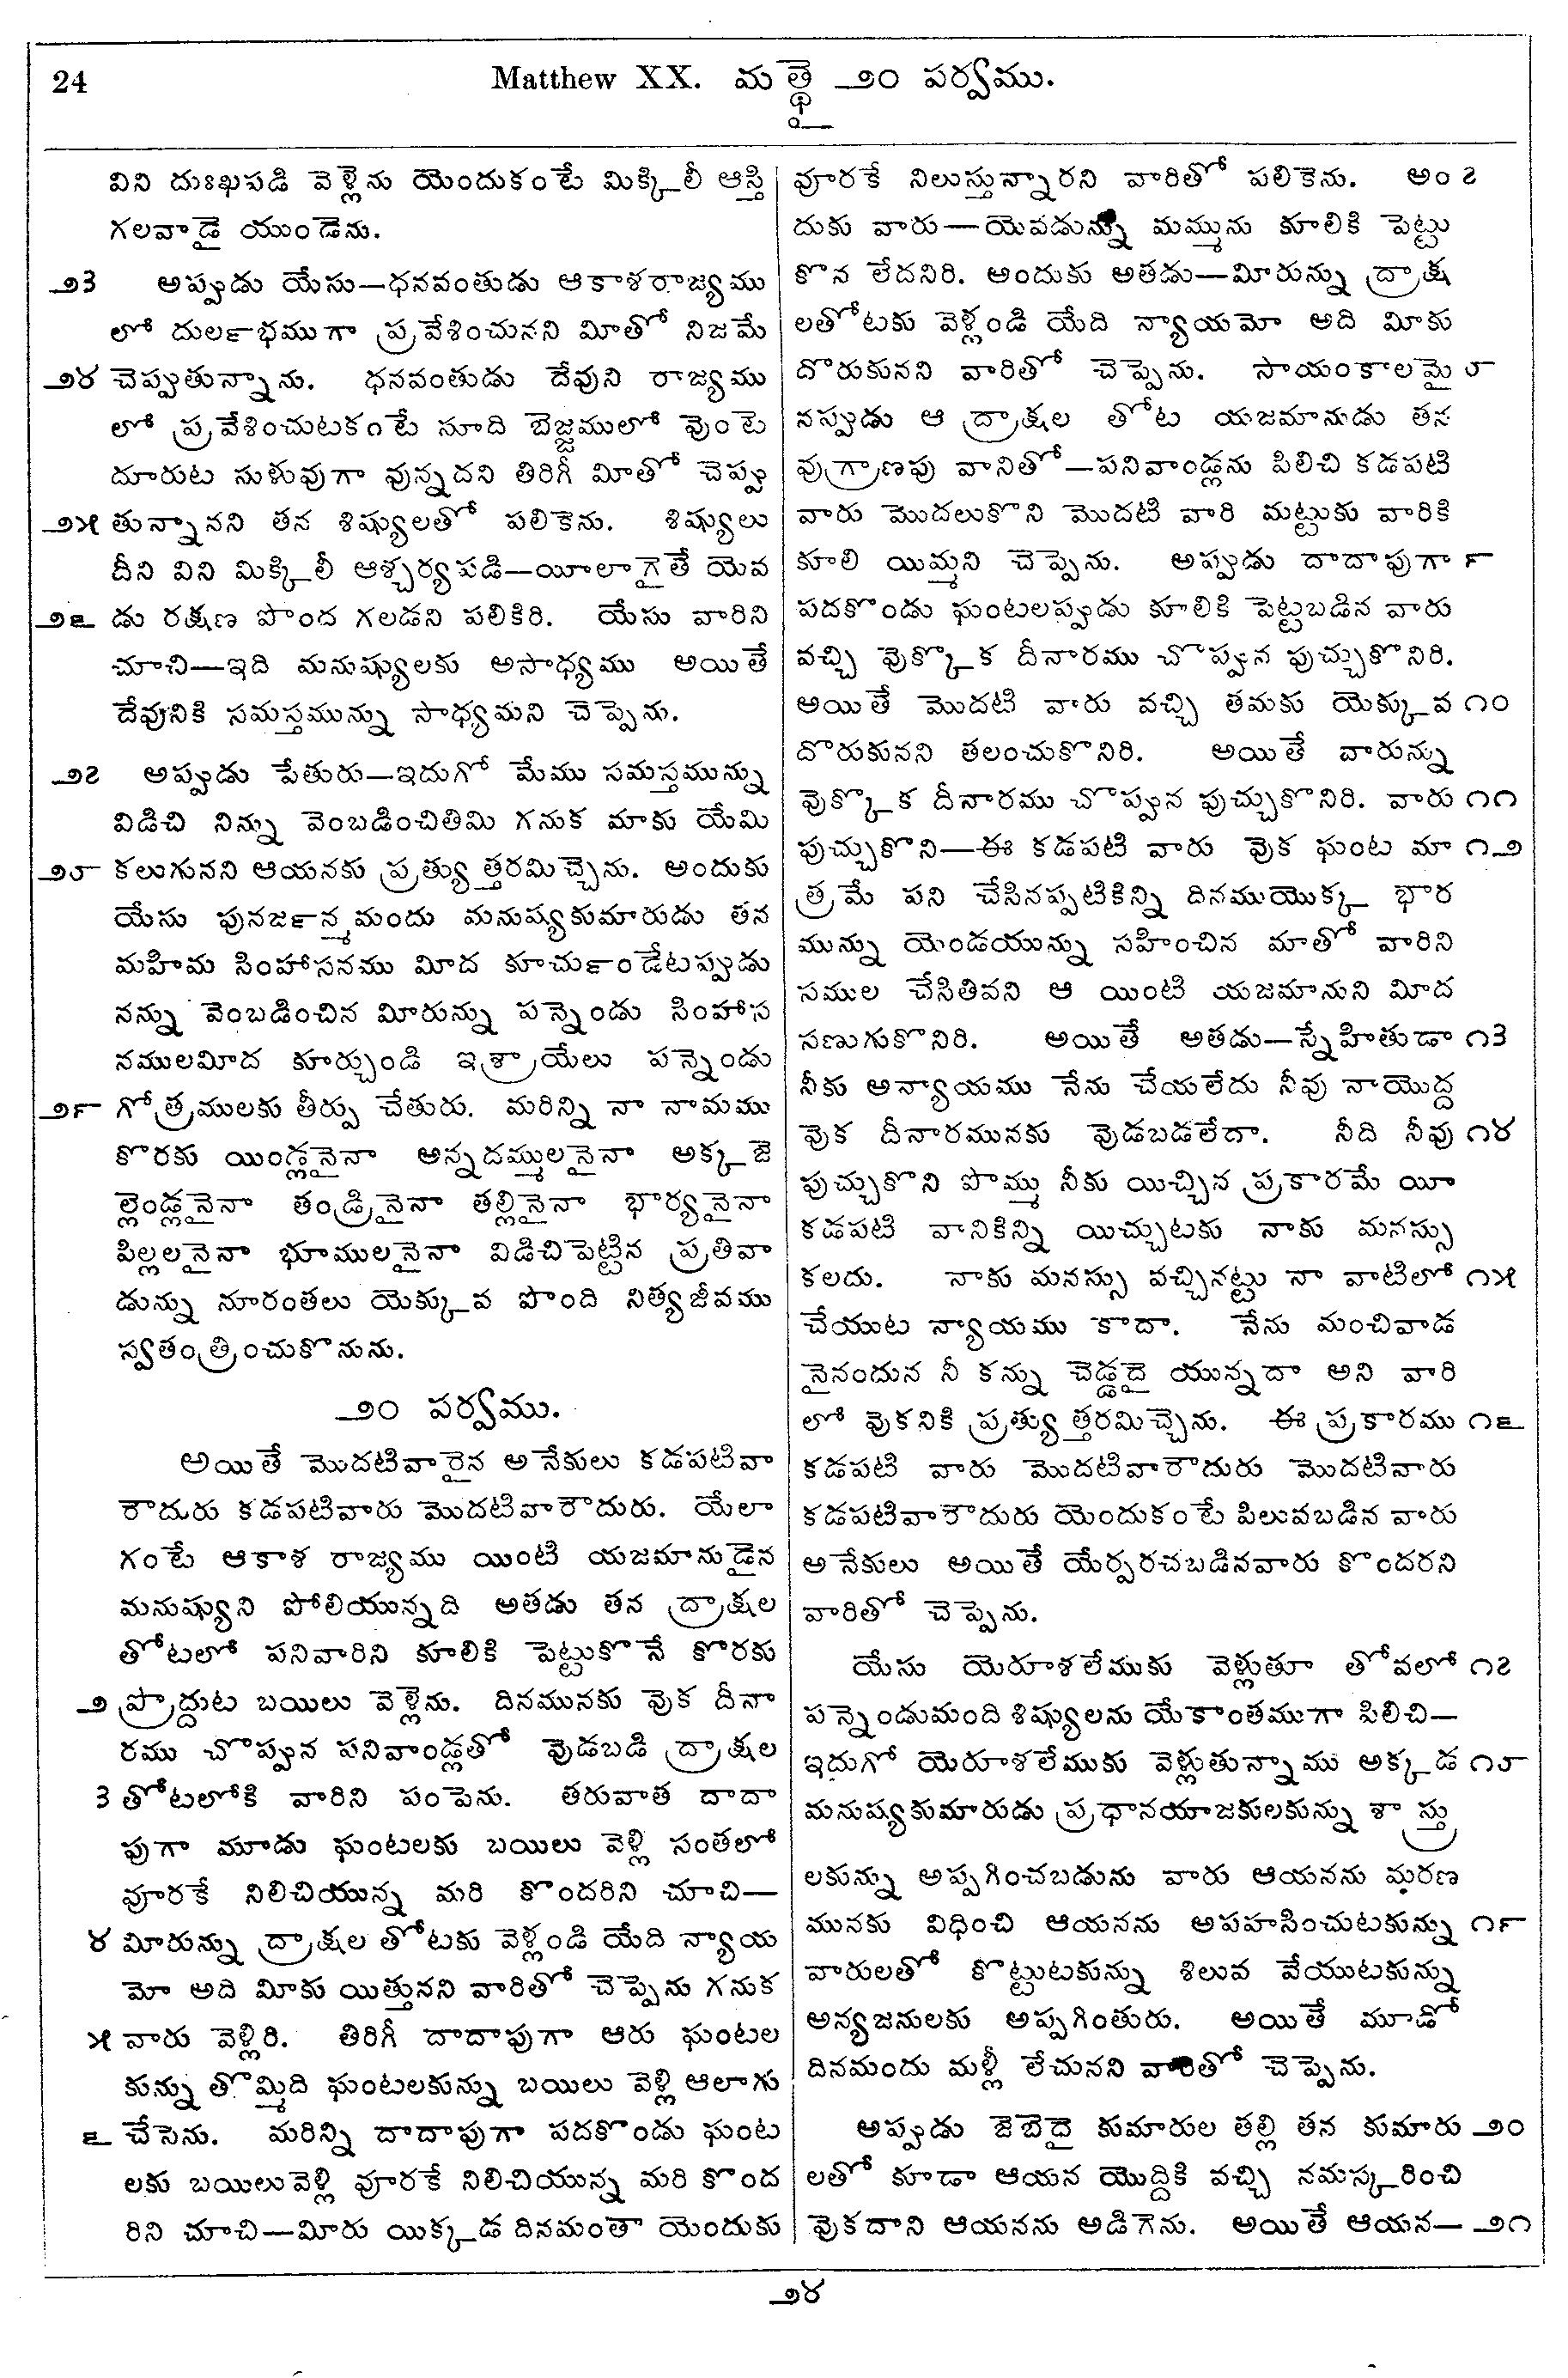 24
Matthew XX. మత్థై ౨౦ పర్వము.
విని దుఃఖపడి వెళ్లెను యెందుకంటే మిక్కిలీ ఆస్తి
గలవాడై యుండెను.
౨౩ అప్పుడు యేసు—ధనవంతుడు ఆకాశరాజ్యము
లో దుల౯భముగా ప్రవేశించునని మీతో నిజమే
౨౪ చెప్పుతున్నాను. ధనవంతుడు దేవుని రాజ్యము
లో ప్రవేశించుటకంటే సూది బెజ్జములో వుంటె
దూరుట సుళువుగా వున్నదని తిరిగీ మీతో చెప్పు
౨౫ తున్నానని తన శిష్యులతో పలికెను. శిష్యులు
దీని విని మిక్కిలీ ఆశ్చర్యపడి—యీలాగైతే యెవ
౨౬ డు రక్షణ పొంద గలడని పలికిరి. యేసు వారిని
చూచి—ఇది మనుష్యులకు అసాధ్యము అయితే
దేవునికి సమస్తమున్ను సాధ్యమని చెప్పెను.
౨౭ అప్పుడు పేతురు—ఇదుగో మేము సమస్తమున్ను
విడిచి నిన్ను వెంబడించితిమి గనుక మాకు యేమి
౨౮ కలుగునని ఆయనకు ప్రత్యుత్తరమిచ్చెను. అందుకు
యేసు పునజ౯న్మమందు మనుష్యకుమారుడు తన
మహిమ సింహాసనము మీద కూచు౯ండేటప్పుడు
నన్ను వెంబడించిన మీరున్ను పన్నెండు సింహాస
నములమీద కూర్చుండి ఇశ్రాయేలు పన్నెండు
౨౯ గోత్రములకు తీర్పు చేతురు. మరిన్ని నా నామము
కొరకు యిండ్లనైనా అన్నదమ్ములనైనా అక్కజె
ల్లెండ్లనైనా తండ్రినైనా తల్లినైనా భార్యనైనా
పిల్లలనైనా భూములనైనా విడిచిపెట్టిన ప్రతివా
డున్ను నూరంతలు యెక్కువ పొంది నిత్యజీవము
స్వతంత్రించుకొనును.
౨౦ పర్వము.
అయితే మొదటివారైన అనేకులు కడపటివా
రౌదురు కడపటివారు మొదటివారౌదురు. యేలా
గంటే ఆకాశ రాజ్యము యింటి యజమానుడైన
మనుష్యుని పోలియున్నది అతడు తన ద్రాక్షల
తోటలో పనివారిని కూలికి పెట్టుకొనే కొరకు
౨ ప్రొద్దుట బయిలు వెళ్లెను. దినమునకు వుక దీనా
రము చొప్పున పనివాండ్లతో వుడబడి ద్రాక్షల
౩ తోటలోకి వారిని పంపెను. తరువాత దాదా
పుగా మూడు ఘంటలకు బయిలు వెళ్లి సంతలో
వూరకే నిలిచియున్న మరి కొందరిని చూచి—
౪ మీరున్ను ద్రాక్షల తోటకు వెళ్లండి యేది న్యాయ
మో అది మీకు యిత్తునని వారితో చెప్పెను గనుక
౫ వారు వెళ్లిరి. తిరిగీ దాదాపుగా ఆరు ఘంటల
కున్ను తొమ్మిది ఘంటలకున్ను బయిలు వెళ్లి ఆలాగు
౬ చేసెను. మరిన్ని దాదాపుగా పదకొండు ఘంట
లకు బయిలువెళ్లి వూరకే నిలిచియున్న మరి కొంద
రిని చూచి—మీరు యిక్కడ దినమంతా యెందుకు
వూరకే నిలుస్తున్నారని వారితో పలికెను. అం ౭
దుకు వారు—యెవడున్ను మమ్మును కూలికి పెట్టు
కొన లేదనిరి. అందుకు అతడు—మీరున్ను ద్రాక్ష
లతోటకు వెళ్లండి యేది న్యాయమో అది మీకు
దొరుకునని వారితో చెప్పెను. సాయంకాలమై ౮
నప్పుడు ఆ ద్రాక్షల తోట యజమానుడు తన
వుగ్రాణపు వానితో—పనివాండ్లను పిలిచి కడపటి
వారు మొదలుకొని మొదటి వారి మట్టుకు వారికి
కూలి యిమ్మని చెప్పెను. అప్పుడు దాదాపుగా ౯
పదకొండు ఘంటలప్పుడు కూలికి పెట్టబడిన వారు
వచ్చి వుక్కొక దీనారము చొప్పున పుచ్చుకొనిరి.
అయితే మొదటి వారు వచ్చి తమకు యెక్కువ ౧౦
దొరుకునని తలంచుకొనిరి. అయితే వారున్ను
వుక్కొక దీనారము చొప్పున పుచ్చుకొనిరి. వారు ౧౧
పుచ్చుకొని—ఈ కడపటి వారు వుక ఘంట మా ౧౨
త్రమే పని చేసినప్పటికిన్ని దినముయొక్క భార
మున్ను యెండయున్ను సహించిన మాతో వారిని
సముల చేసితివని ఆ యింటి యజమానుని మీద
సణుగుకొనిరి. అయితే అతడు—స్నేహితుడా ౧౩
నీకు అన్యాయము నేను చేయలేదు నీవు నాయొద్ద
వుక దీనారమునకు వుడబడలేదా. నీది నీవు ౧౪
పుచ్చుకొని పొమ్ము నీకు యిచ్చిన ప్రకారమే యీ
కడపటి వానికిన్ని యిచ్చుటకు నాకు మనస్సు
కలదు. నాకు మనస్సు వచ్చినట్టు నా వాటిలో ౧౫
చేయుట న్యాయము కాదా. నేను మంచివాడ
నైనందున నీ కన్ను చెడ్డదై యున్నదా అని వారి
లో వుకనికి ప్రత్యుత్తరమిచ్చెను. ఈ ప్రకారము ౧౬
కడపటి వారు మొదటివారౌదురు మొదటివారు
కడపటివారౌదురు యెందుకంటే పిలువబడిన వారు
అనేకులు అయితే యేర్పరచబడినవారు కొందరని
వారితో చెప్పెను.
యేసు యెరూశలేముకు వెళ్లుతూ తోవలో ౧౭
పన్నెండుమంది శిష్యులను యేకాంతముగా పిలిచి—
ఇదుగో యెరూశలేముకు వెళ్లుతున్నాము అక్కడ ౧౮
మనుష్యకుమారుడు ప్రధానయాజకులకున్ను శాస్త్రు
లకున్ను అప్పగించబడును వారు ఆయనను మరణ
మునకు విధించి ఆయనను అపహసించుటకున్ను ౧౯
వారులతో కొట్టుటకున్ను శిలువ వేయుటకున్ను
అన్యజనులకు అప్పగింతురు. అయితే మూడో
దినమందు మళ్లీ లేచునని వారితో చెప్పెను.
అప్పుడు జెబెదై కుమారుల తల్లి తన కుమారు ౨౦
లతో కూడా ఆయన యొద్దికి వచ్చి నమస్కరించి
వుకదాని ఆయనను అడిగెను. అయితే ఆయన— ౨౧
౨౪